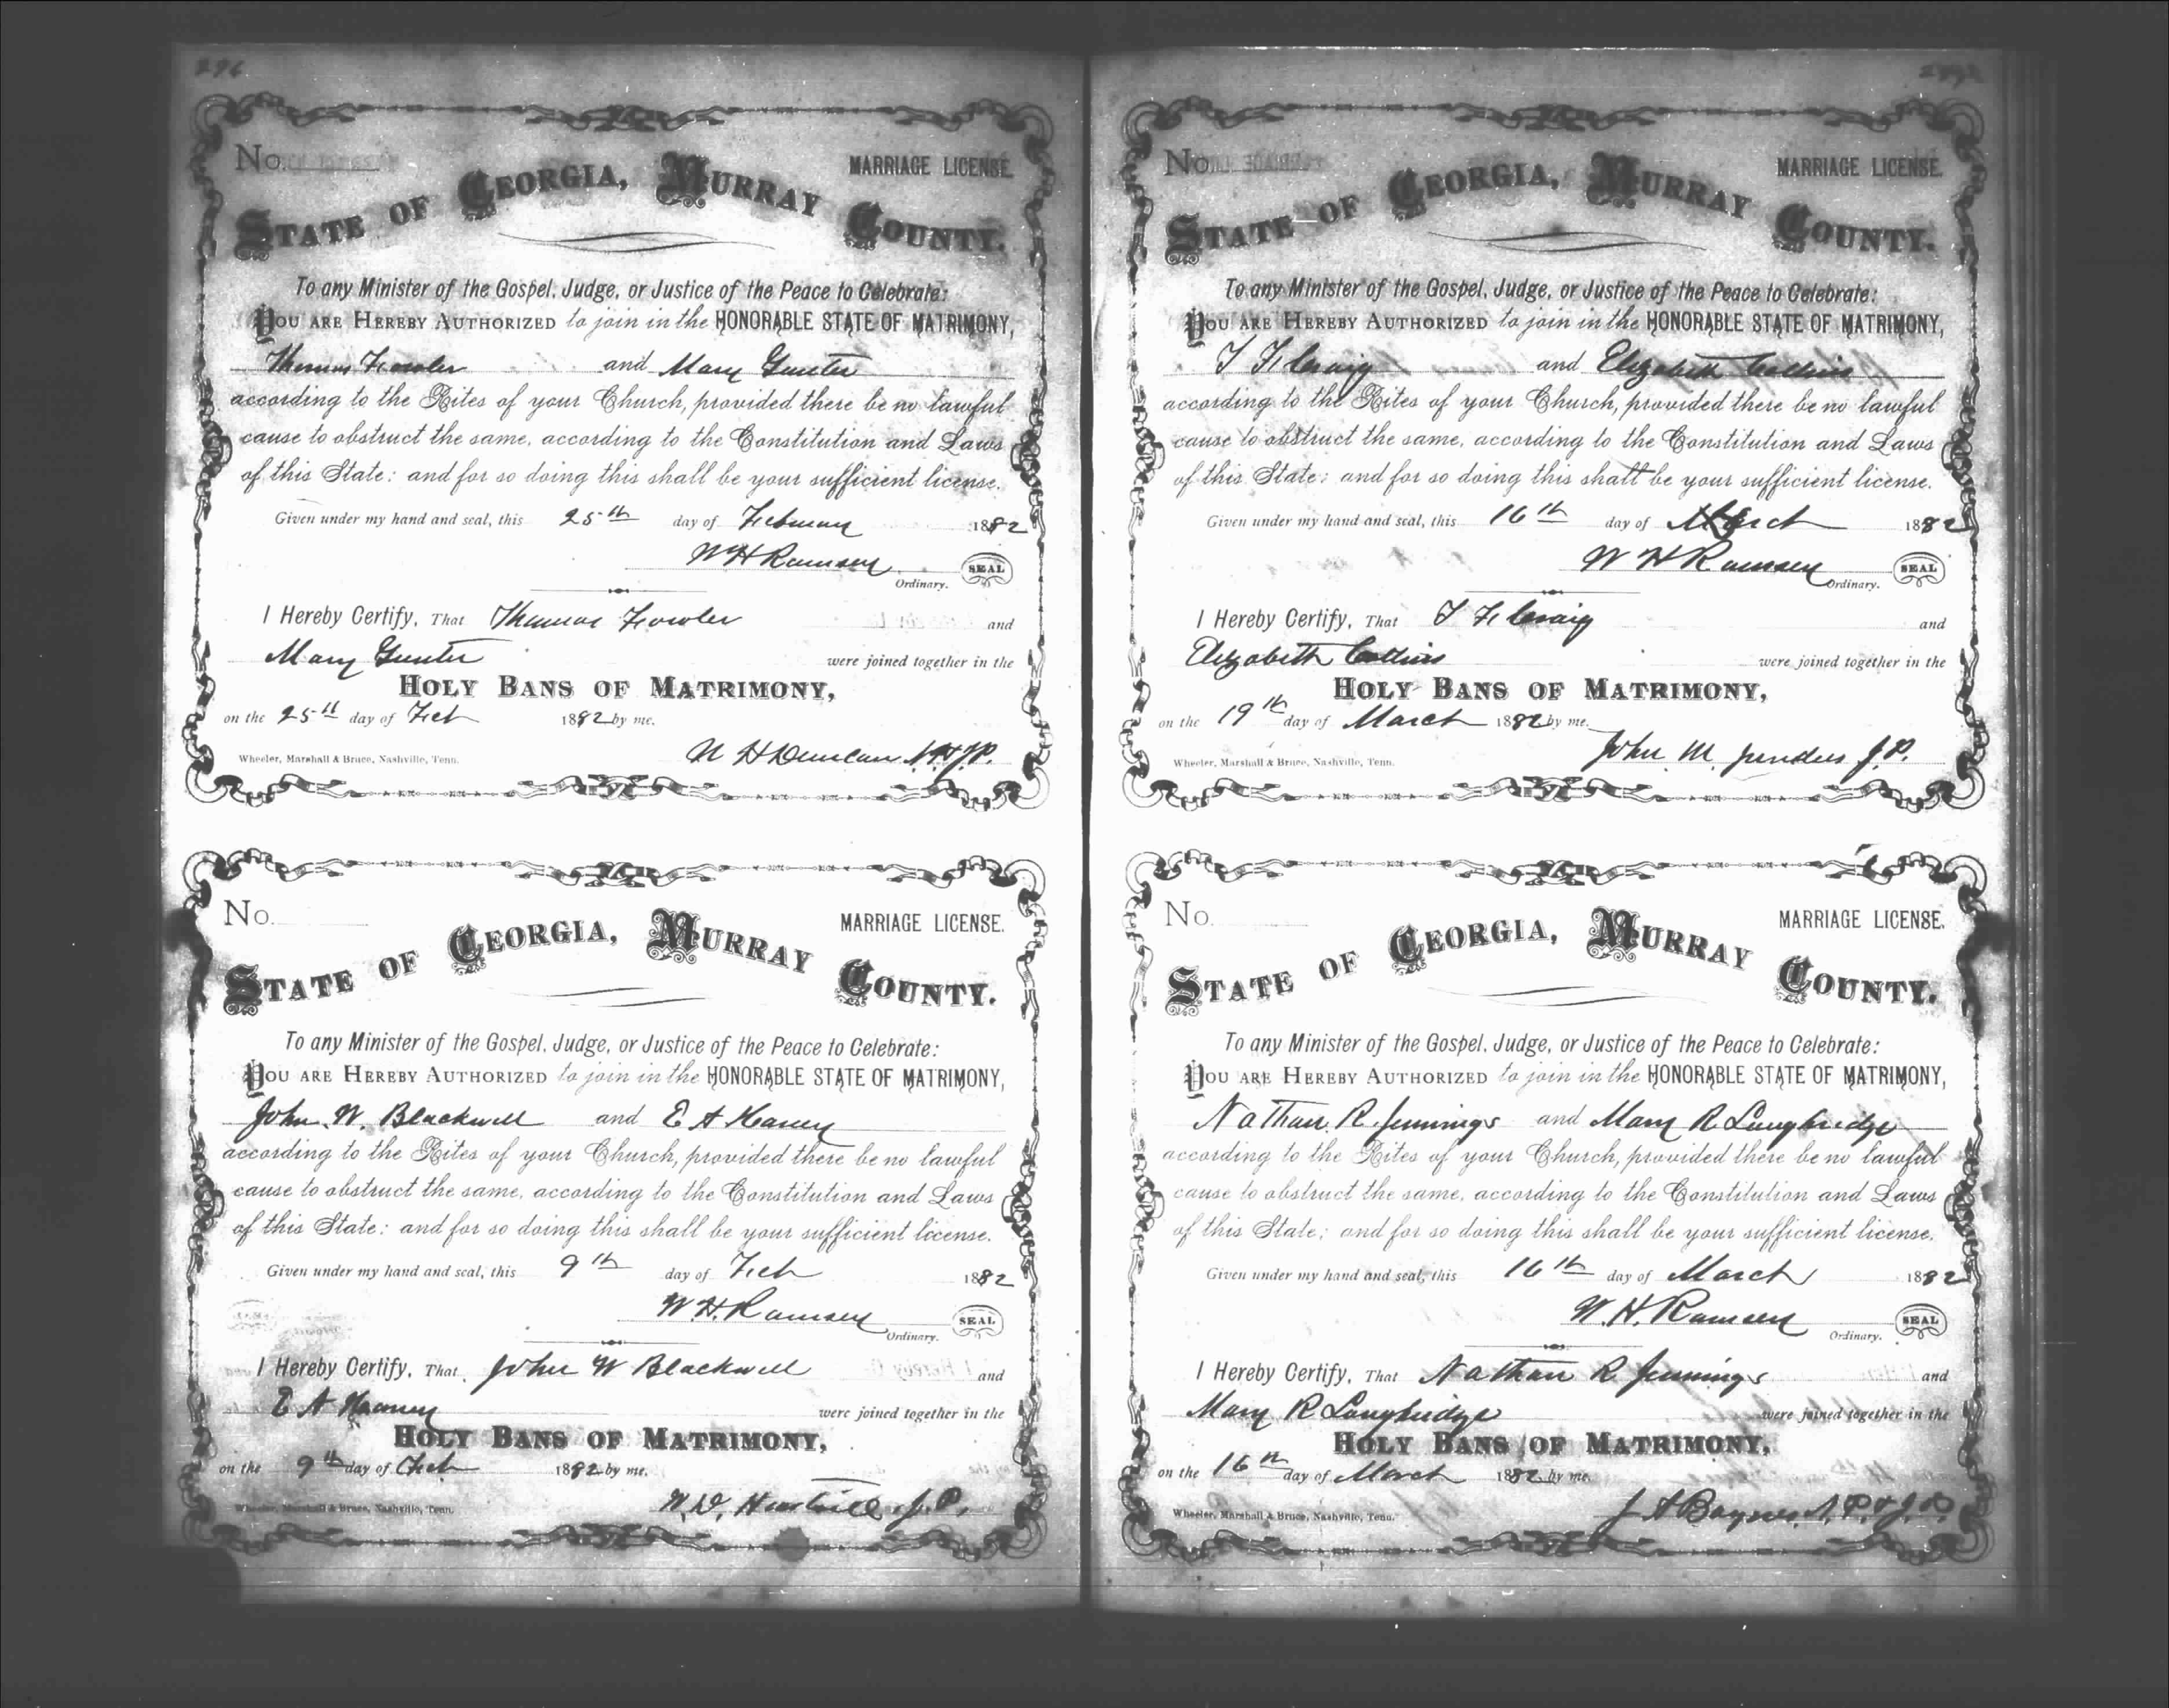 296
No.
MARRIAGE LICENSE.
STATE OF GEORGIA, MURRAY COUNTY.
To any Minister of the Gospel, Judge, or Justice of the Peace to Celebrate:
YOU ARE HEREBY AUTHORIZED to join in the HONORABLE STATE OF MATRIMONY,
Thomas Fowler and Mary Gunter
according to the Rites of your Church, provided there be no lawful
cause to obstruct the same, according to the Constitution and Laws
of this State: and for so doing this shall be your sufficient license.
Given under my hand and seal, this 25th day of February 1882
W H Ramsey
Ordinary. SEAL
I Hereby Certify, That Thomas Fowler and
Mary Gunter were joined together in the
HOLY BANS OF MATRIMONY,
on the 25th day of Feb 1882 by me.
Wheeler, Marshall & Bruce, Nashville, Tenn. H Duncan J.P.
No.
MARRIAGE LICENSE.
STATE OF GEORGIA, MURRAY COUNTY.
To any Minister of the Gospel, Judge, or Justice of the Peace to Celebrate:
YOU ARE HEREBY AUTHORIZED to join in the HONORABLE STATE OF MATRIMONY,
John W. Blackwell and E A Haney
according to the Rites of your Church, provided there be no lawful
cause to obstruct the same, according to the Constitution and Laws
of this State: and for so doing this shall be your sufficient license.
Given under my hand and seal, this 9th day of Feb 1882
W. H. Ramsey
Ordinary. SEAL
I Hereby Certify, That John W Blackwell and
E A Haney were joined together in the
HOLY BANS OF MATRIMONY,
on the 9th day of Feb 1882 by me.
Wheeler, Marshall & Bruce, Nashville, Tenn. W. D. J.P.
No.
MARRIAGE LICENSE.
STATE OF GEORGIA, MURRAY COUNTY.
To any Minister of the Gospel, Judge, or Justice of the Peace to Celebrate:
YOU ARE HEREBY AUTHORIZED to join in the HONORABLE STATE OF MATRIMONY,
T F Craig and Elizabeth Collins
according to the Rites of your Church, provided there be no lawful
cause to obstruct the same, according to the Constitution and Laws
of this State: and for so doing this shall be your sufficient license.
Given under my hand and seal, this 16th day of March 1882
W H Ramsey
Ordinary. SEAL
I Hereby Certify, That T F Craig and
Elizabeth Collins were joined together in the
HOLY BANS OF MATRIMONY,
on the 19th day of March 1882 by me.
Wheeler, Marshall & Bruce, Nashville, Tenn. John M. J.P.
No.
MARRIAGE LICENSE.
STATE OF GEORGIA, MURRAY COUNTY.
To any Minister of the Gospel, Judge, or Justice of the Peace to Celebrate:
YOU ARE HEREBY AUTHORIZED to join in the HONORABLE STATE OF MATRIMONY,
Nathan R. Jennings and Mary R Loughridge
according to the Rites of your Church, provided there be no lawful
cause to obstruct the same, according to the Constitution and Laws
of this State: and for so doing this shall be your sufficient license.
Given under my hand and seal, this 16th day of March 1882
W. H. Ramsey
Ordinary. SEAL
I Hereby Certify, That Nathan R Jennings and
Mary R Loughridge were joined together in the
HOLY BANS OF MATRIMONY,
on the 16th day of March 1882 by me.
Wheeler, Marshall & Bruce, Nashville, Tenn. J A N.P. & J.P.